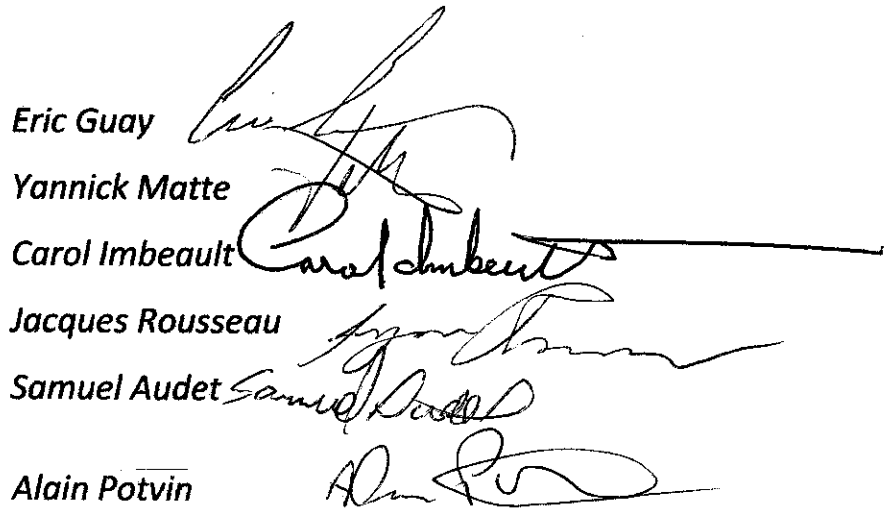 Eric Guay
Yannick Matte
Carol Imbeault Carol Imbeault
Jacques Rousseau
Samuel Audet Samuel Audet
Alain Potvin